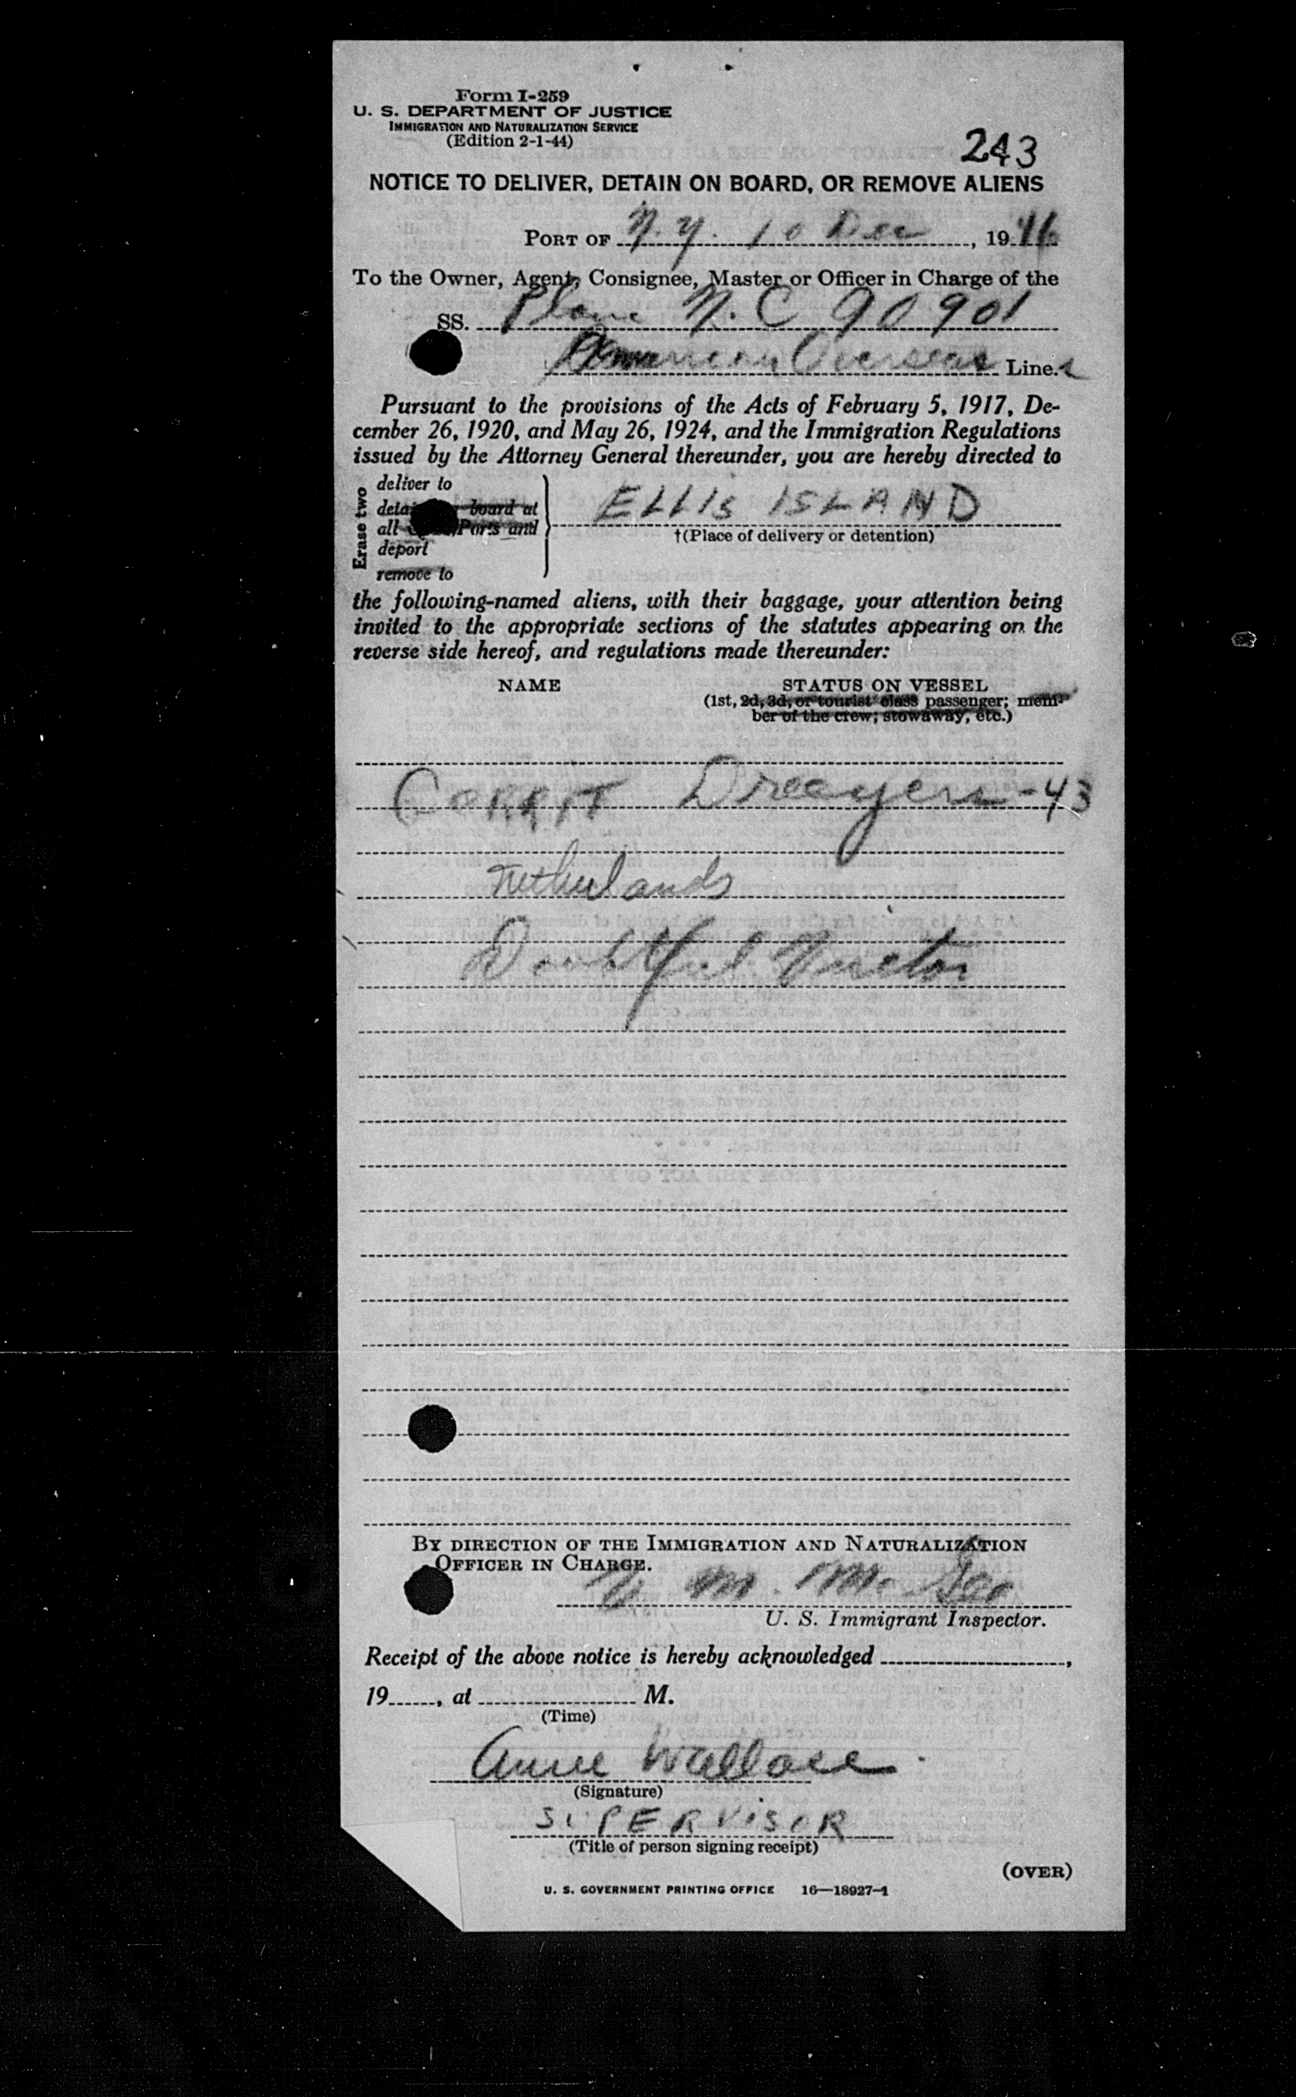 Form I-259
U. S. DEPARTMENT OF JUSTICE
IMMIGRATION AND NATURALIZATION SERVICE
(Edition 2-1-44)
243
NOTICE TO DELIVER, DETAIN ON BOARD, OR REMOVE ALIENS
PORT OF N.Y. 10 Dec, 1946
To the Owner, Agent, Consignee, Master or Officer in Charge of the
SS. Plane N.C 90901
American Overseas Line.
Pursuant to the provisions of the Acts of February 5, 1917, De-
cember 26, 1920, and May 26, 1924, and the Immigration Regulations
issued by the Attorney General thereunder, you are hereby directed to
Erase two
deliver to
board at
all Ports and
deport
remove to
ELLIS ISLAND
†(Place of delivery or detention)
the following-named aliens, with their baggage, your attention being
invited to the appropriate sections of the statutes appearing on the
reverse side hereof, and regulations made thereunder:
NAME STATUS ON VESSEL
(1st, 2d, 3d, or tourist class passenger; mem-
ber of the crew; stowaway, etc.)
GERRIT Dreeyers -43
Netherlands
Doubtful Visitor
BY DIRECTION OF THE IMMIGRATION AND NATURALIZATION
OFFICER IN CHARGE.
M. Mc Gee
U. S. Immigrant Inspector.
Receipt of the above notice is hereby acknowledged ,
19 , at M.
(Time)
Anne Wallace
(Signature)
SUPERVISOR
(Title of person signing receipt)
(OVER)
U. S. GOVERNMENT PRINTING OFFICE 16—18927-1